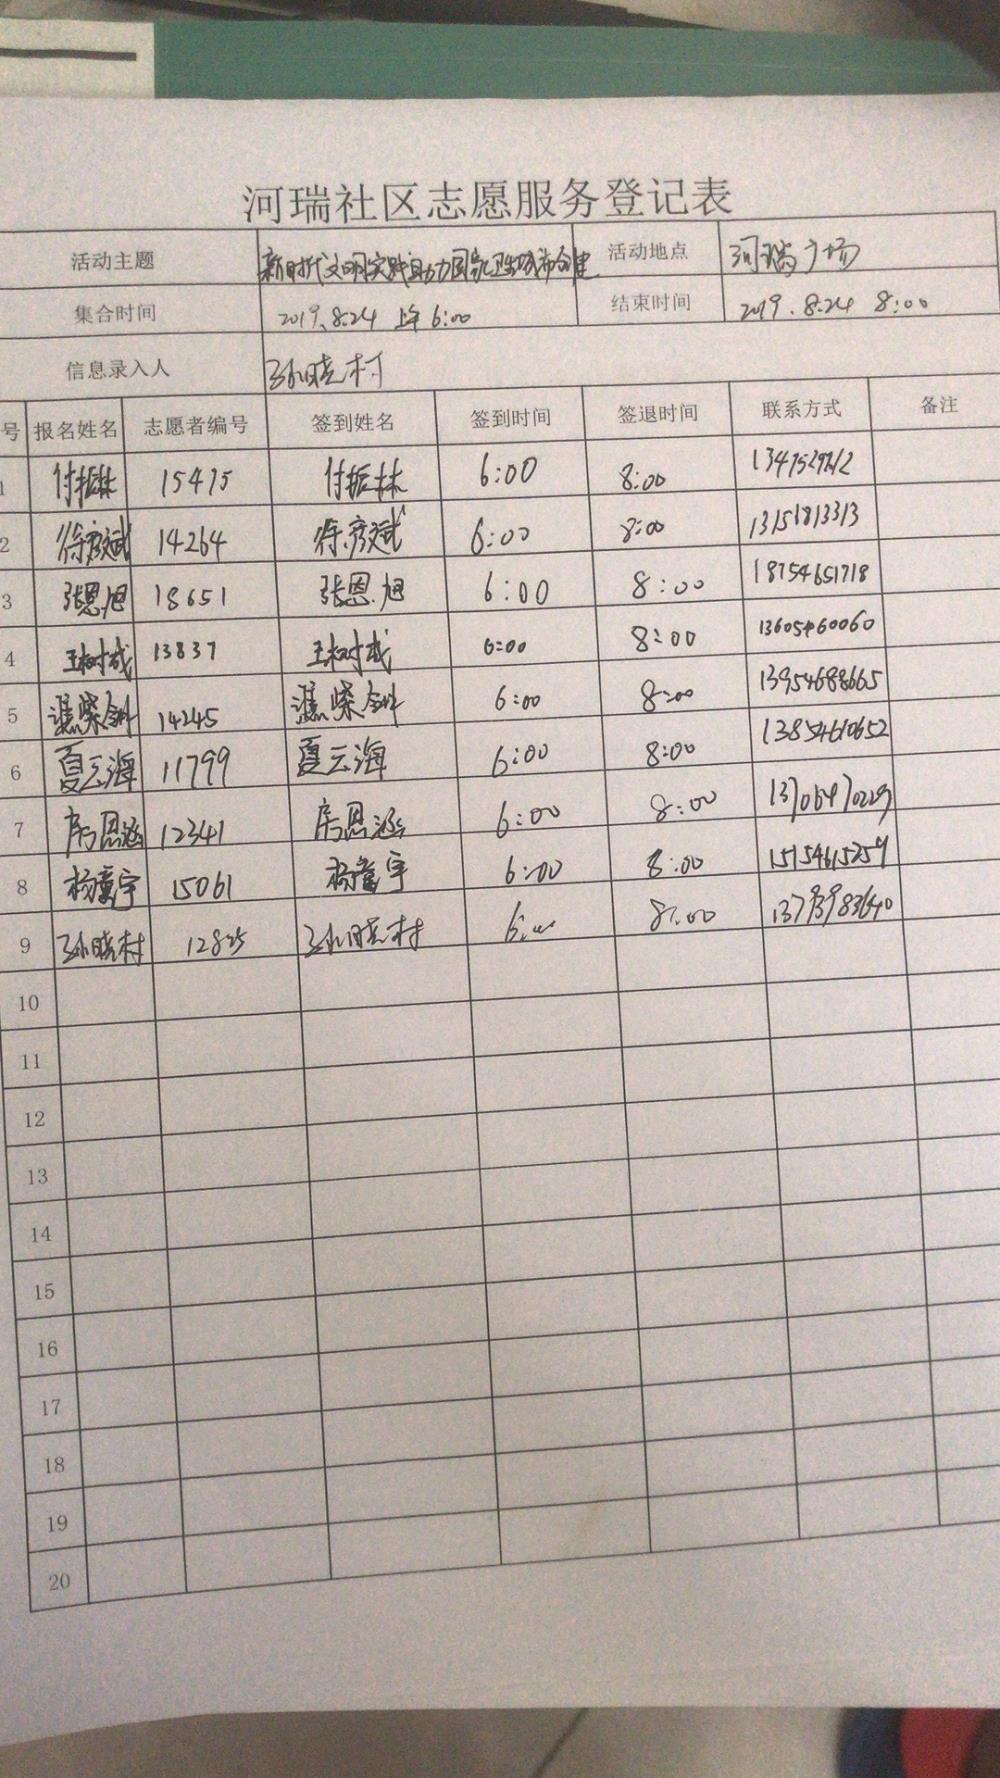 河瑞社区志愿服务登记表
活动主题 新时代文明实践自助力国家卫生城市创建 活动地点 河瑞广场
集合时间 2019.8.24 上午6:00 结束时间 2019.8.24 8:00
信息录入人 孙晓村
号 报名姓名 志愿者编号 签到姓名 签到时间 签退时间 联系方式 备注
1 付振林 15475 付振林 6:00 8:00
2 徐彦斌 14264 徐彦斌 6:00 8:00 13151813313
3 张恩旭 18651 张恩旭 6:00 8:00 18754651718
4 王树成 13837 王树成 6:00 8:00 13605460060
5 14245 6:00 8:00 13954688665
6 夏云海 11799 夏云海 6:00 8:00 13854610652
7 房恩涵 12341 房恩涵 6:00 8:00 13706470229
8 杨童宇 15061 杨童宇 6:00 8:00 15154615259
9 孙晓村 孙晓村 8:00
10
11
12
13
14
15
16
17
18
19
20